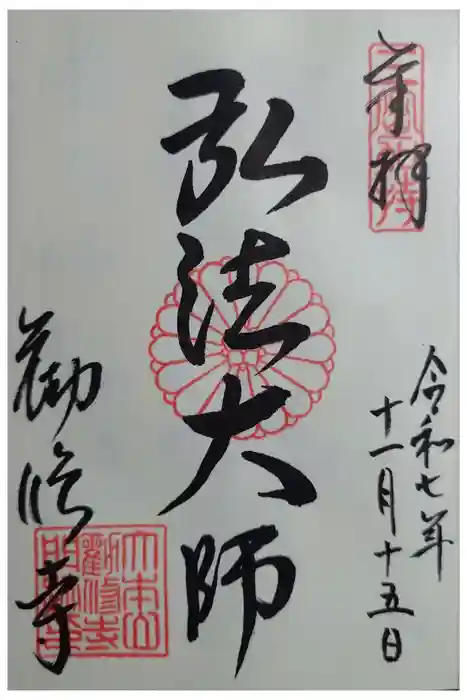 奉拝
令和七年
十一月十五日
弘法大師
勧修寺
大本山
勸修寺